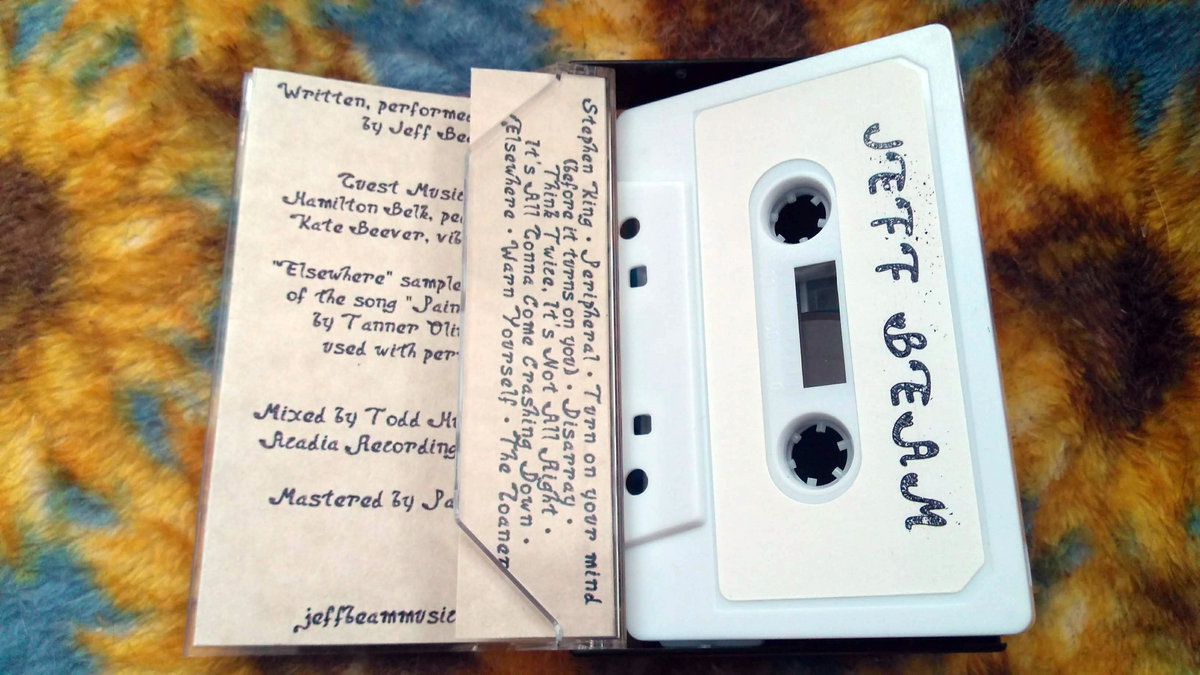 Written, performe
by Jeff Be
Guest Music
Hamilton Belk, pe
Kate Beever, vib
"Elsewhere" sample
of the song "Pain
by Tanner Oli
used with per
Mixed by Todd Hu
Acadia Recording
Mastered by Pa
jeffbeammusic
Stephen King · Peripheral · Turn on your mind
(before it turns on you) · Disarray ·
Think Twice, It's Not All Right ·
It's All Gonna Come Crashing Down ·
Elsewhere · Warn Yourself · The Loaner
JEFF BEAM